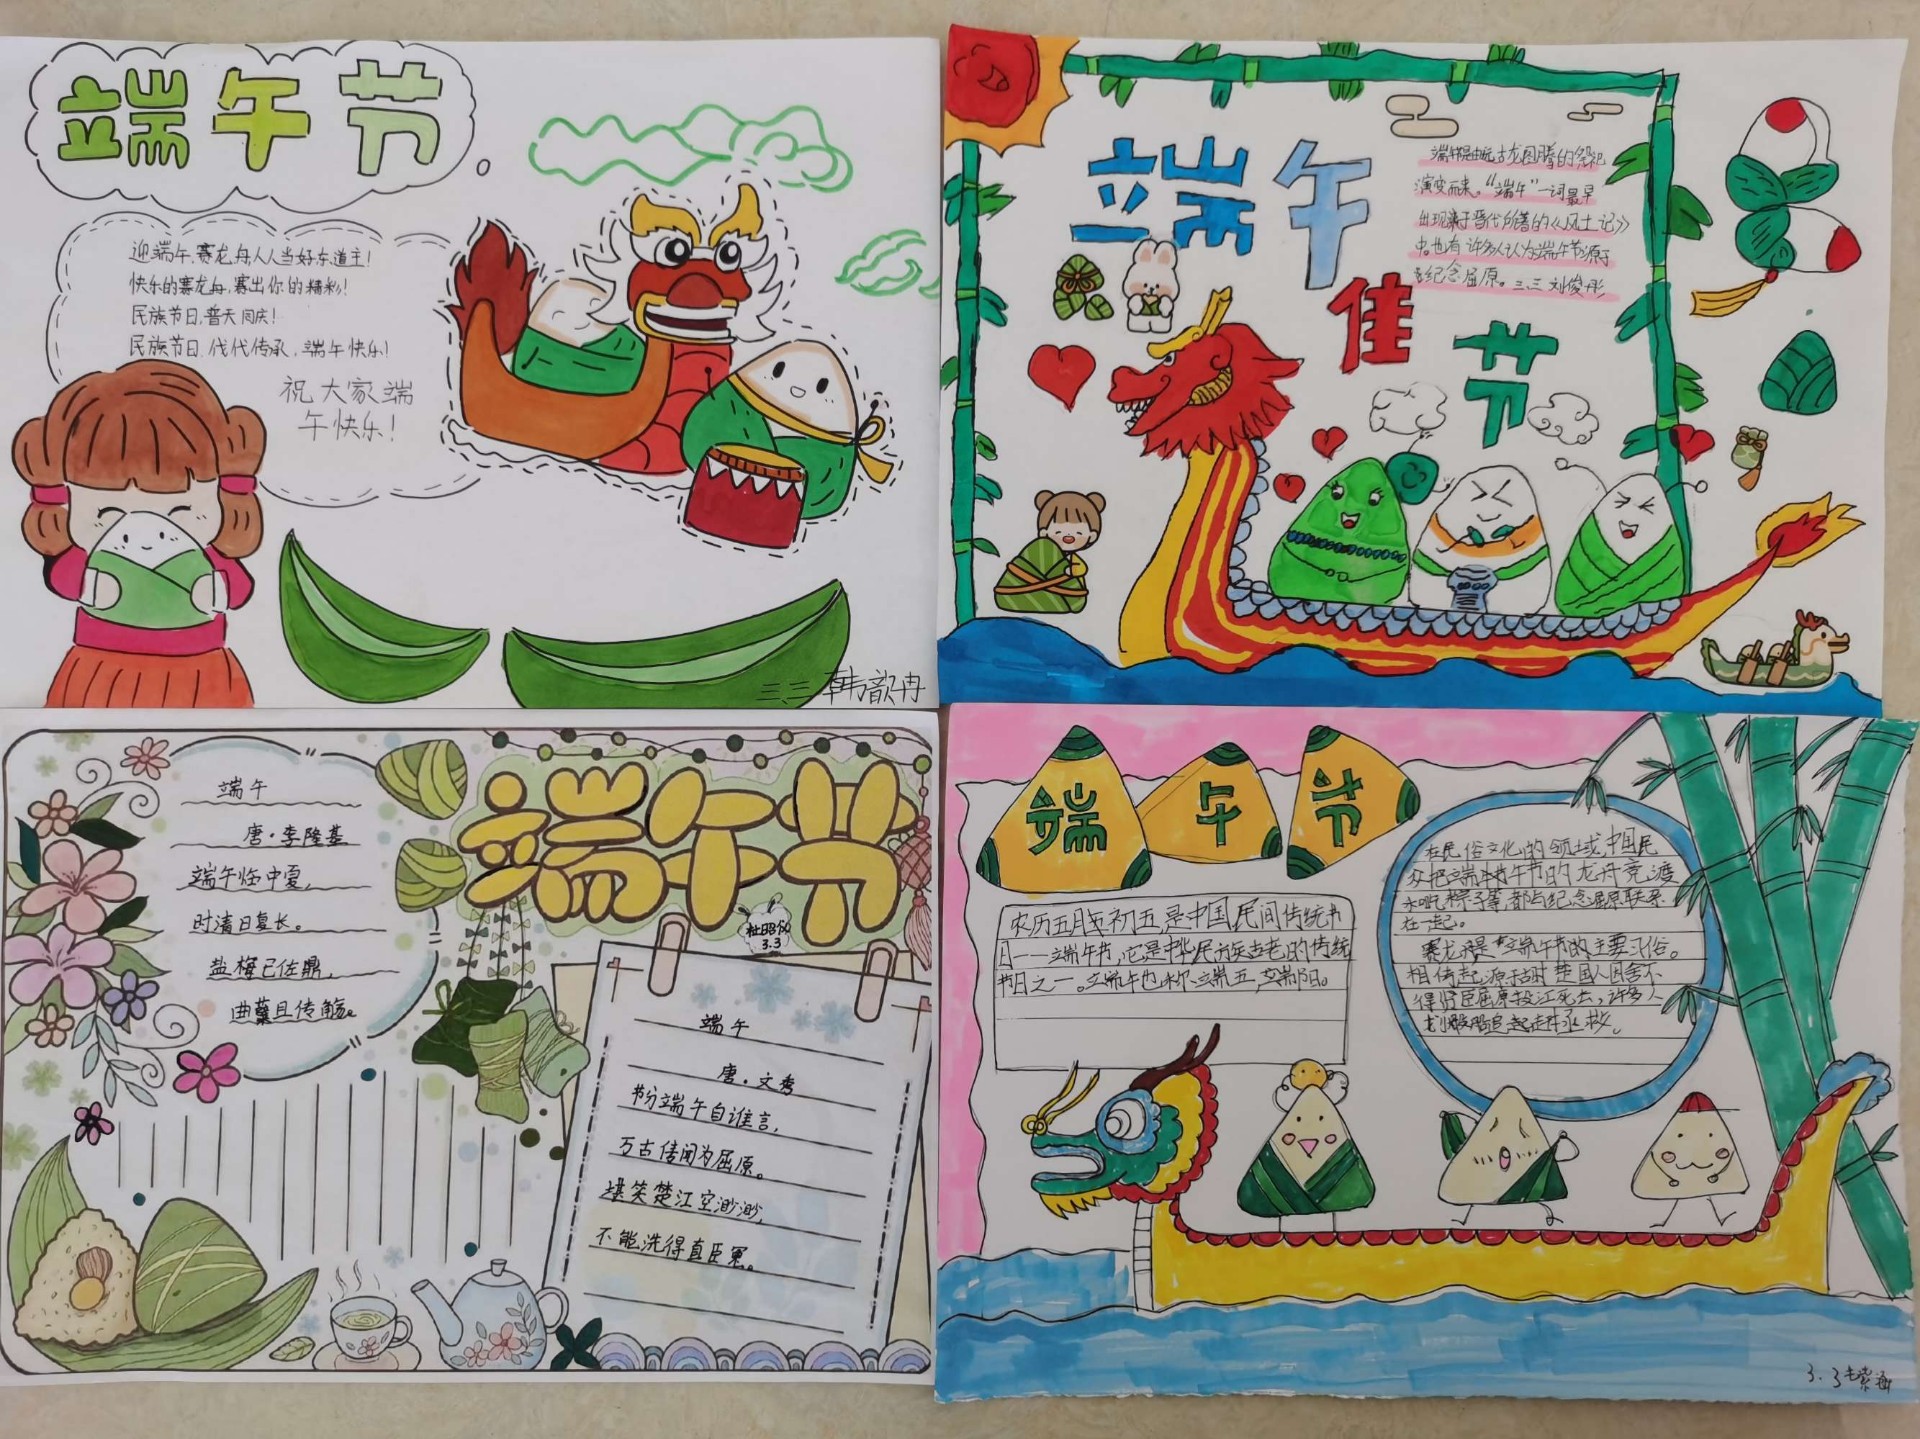 端午节
迎端午,赛龙舟人人当好东道主!
快乐的赛龙舟,赛出你的精彩!
民族节日,普天同庆!
民族节日,代代传承,端午快乐!
祝大家端
午快乐!
三、三 韩歆冉
端午
佳
节
端午节是由远古龙图腾的祭祀
演变而来。“端午”一词最早
出现于晋代的《风土记》
中,也有许多人认为端午节源于
纪念屈原。三、三 刘俊彤
端午
唐·李隆基
端午临中夏,
时清日复长。
盐梅已佐鼎,
曲蘖且传觞。
端午节
3.3
端午
唐·文秀
节分端午自谁言,
万古传闻为屈原。
堪笑楚江空渺渺,
不能洗得直臣冤。
端午节
农历五月初五,是中国民间传统节
日——端午节,它是中华民族古老的传统
节日之一。端午也称端五,端阳。
在民俗文化的领域,中国民
众把端午节的龙舟竞渡
吃粽子等,都与纪念屈原联系
在一起。
赛龙舟是端午节的主要习俗。
相传起源于古时楚国人因舍不
得贤臣屈原投江死去,许多人
划船追赶拯救。
3.3